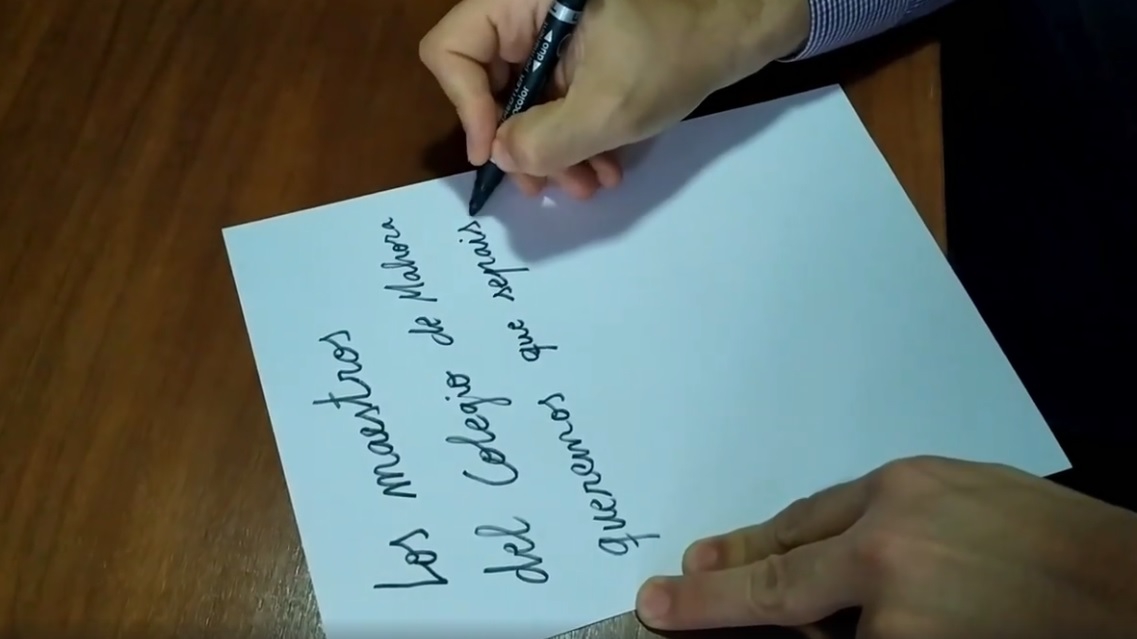 Los maestros
del Colegio de Mahora
queremos que sepais
duo
color